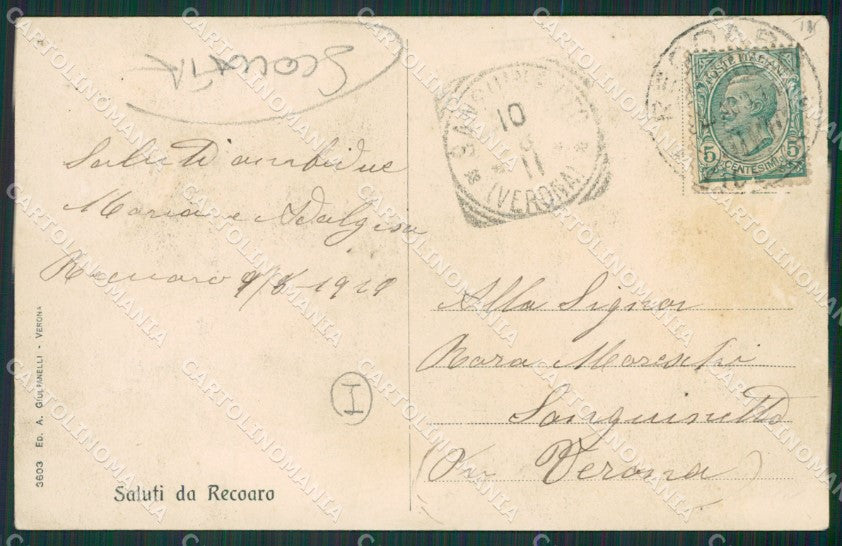 SCOLLATA
Saluti ambidue
Maria e Adalgisa
Recoaro 9/8-1911
3603 ED. A. GIULPANELLI - VERONA
I
Saluti da Recoaro
SANGUINETTO
10
11
* (VERONA) *
RECOARO
POSTE ITALIANE
5 CENTESIMI 5
Alla Signora
Nara Mareschi
Sanguinetto
(Pr. Verona)
CARTOLINOMANIA